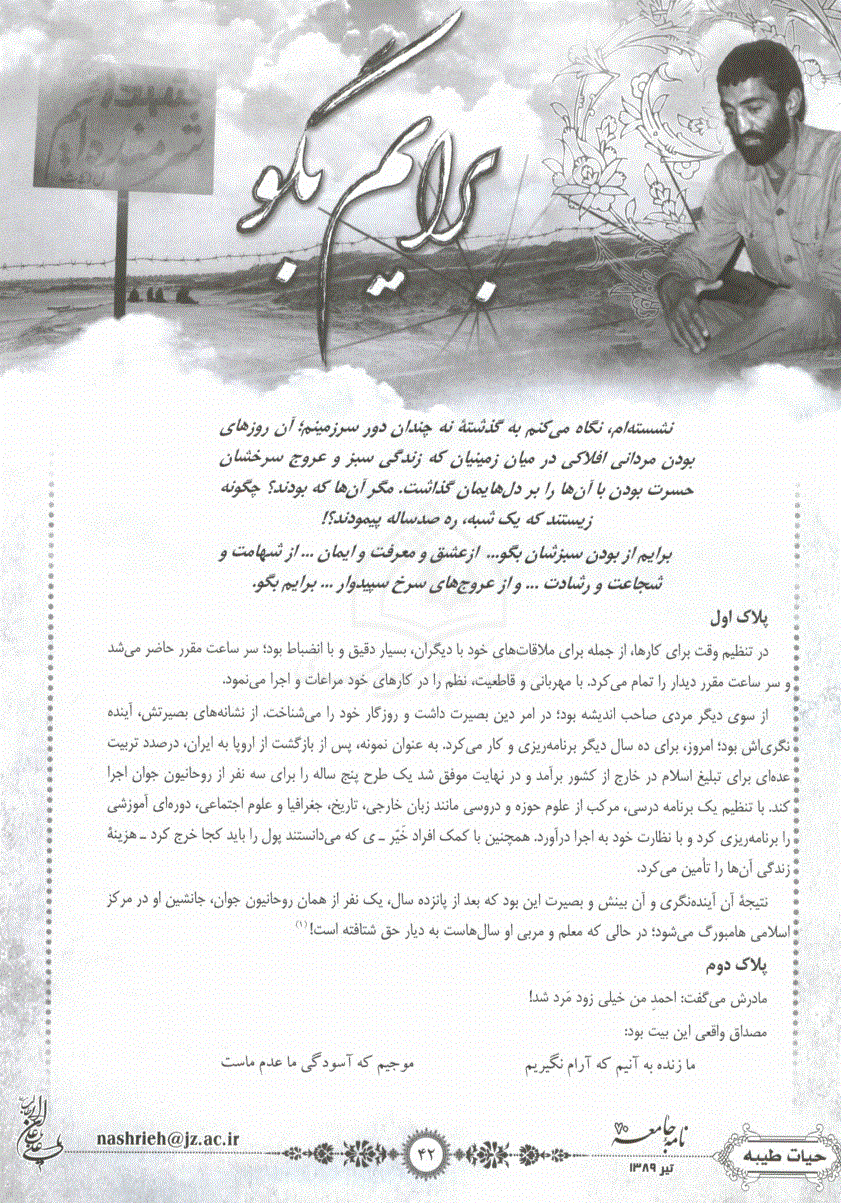 شهدا
شرمنده‌ایم
برایم بگو
نشسته‌ام، نگاه می‌کنم به گذشتهٔ نه چندان دور سرزمینم؛ آن روزهای
بودن مردانی افلاکی در میان زمینیان که زندگی سبز و عروج سرخشان
حسرت بودن با آن‌ها را بر دل‌هایمان گذاشت. مگر آن‌ها که بودند؟ چگونه
زیستند که یک شبه، ره صدساله پیمودند؟!
برایم از بودن سبزشان بگو... ازعشق و معرفت و ایمان ... از شهامت و
شجاعت و رشادت ... و از عروج‌های سرخ سپیدوار ... برایم بگو.
پلاک اول
در تنظیم وقت برای کارها، از جمله برای ملاقات‌های خود با دیگران، بسیار دقیق و با انضباط بود؛ سر ساعت مقرر حاضر می‌شد
و سر ساعت مقرر دیدار را تمام می‌کرد. با مهربانی و قاطعیت، نظم را در کارهای خود مراعات و اجرا می‌نمود.
از سوی دیگر مردی صاحب اندیشه بود؛ در امر دین بصیرت داشت و روزگار خود را می‌شناخت. از نشانه‌های بصیرتش، آینده
نگری‌اش بود؛ امروز، برای ده سال دیگر برنامه‌ریزی و کار می‌کرد. به عنوان نمونه، پس از بازگشت از اروپا به ایران، درصدد تربیت
عده‌ای برای تبلیغ اسلام در خارج از کشور برآمد و در نهایت موفق شد یک طرح پنج ساله را برای سه نفر از روحانیون جوان اجرا
کند. با تنظیم یک برنامه درسی، مرکب از علوم حوزه و دروسی مانند زبان خارجی، تاریخ، جغرافیا و علوم اجتماعی، دوره‌ای آموزشی
را برنامه‌ریزی کرد و با نظارت خود به اجرا درآورد. همچنین با کمک افراد خَیّر ـ ی که می‌دانستند پول را باید کجا خرج کرد ـ هزینهٔ
زندگی آن‌ها را تأمین می‌کرد.
نتیجهٔ آن آینده‌نگری و آن بینش و بصیرت این بود که بعد از پانزده سال، یک نفر از همان روحانیون جوان، جانشین او در مرکز
اسلامی هامبورگ می‌شود؛ در حالی که معلم و مربی او سال‌هاست به دیار حق شتافته است!(۱)
پلاک دوم
مادرش می‌گفت: احمدِ من خیلی زود مَرد شد!
مصداق واقعی این بیت بود:
ما زنده به آنیم که آرام نگیریم موجیم که آسودگی ما عدم ماست
حیات طیبه
نامه جامعه ۷۰
تیر ۱۳۸۹
۴۲
nashrieh@jz.ac.ir